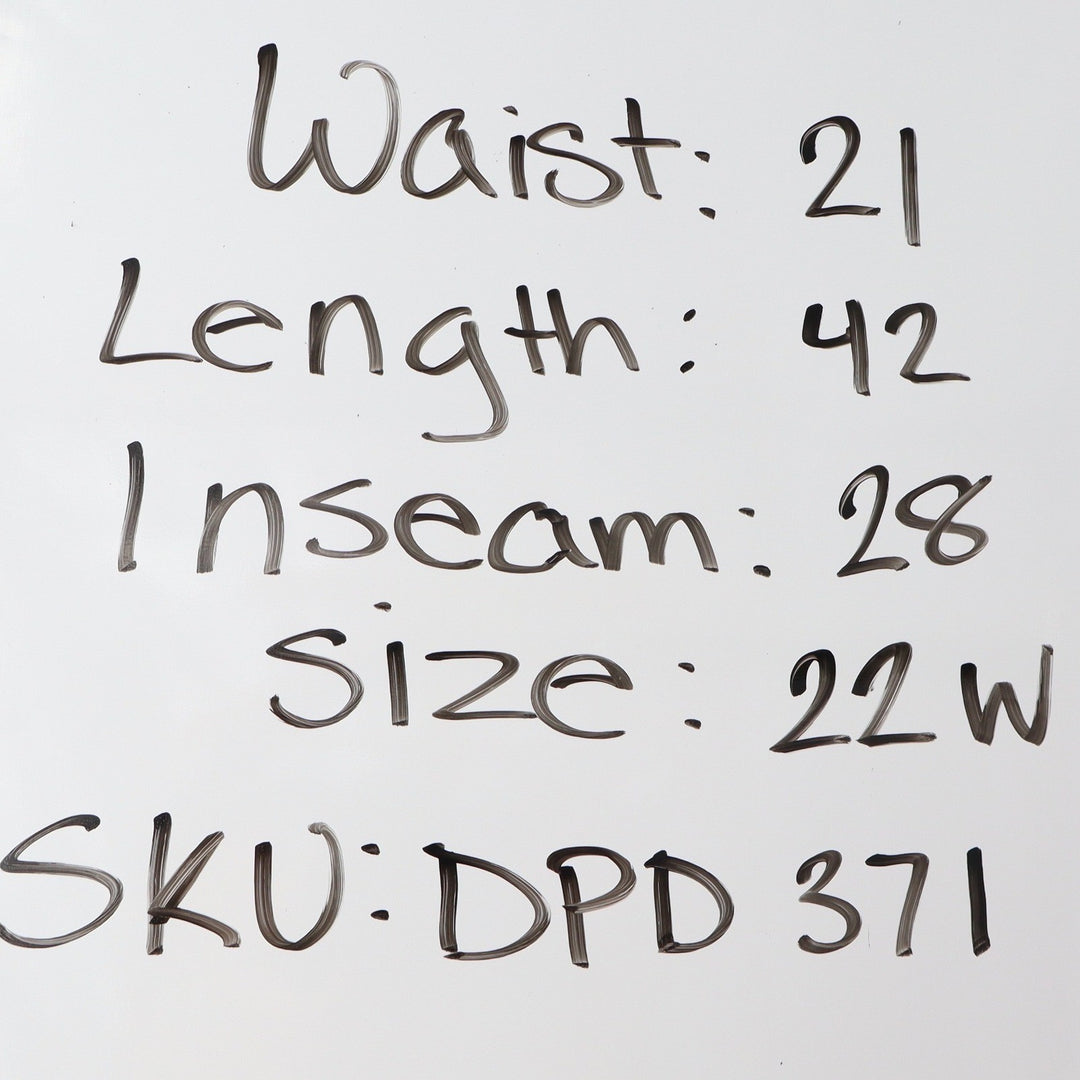 Waist: 21
Length: 42
Inseam: 28
Size: 22W
SKU: DPD 371